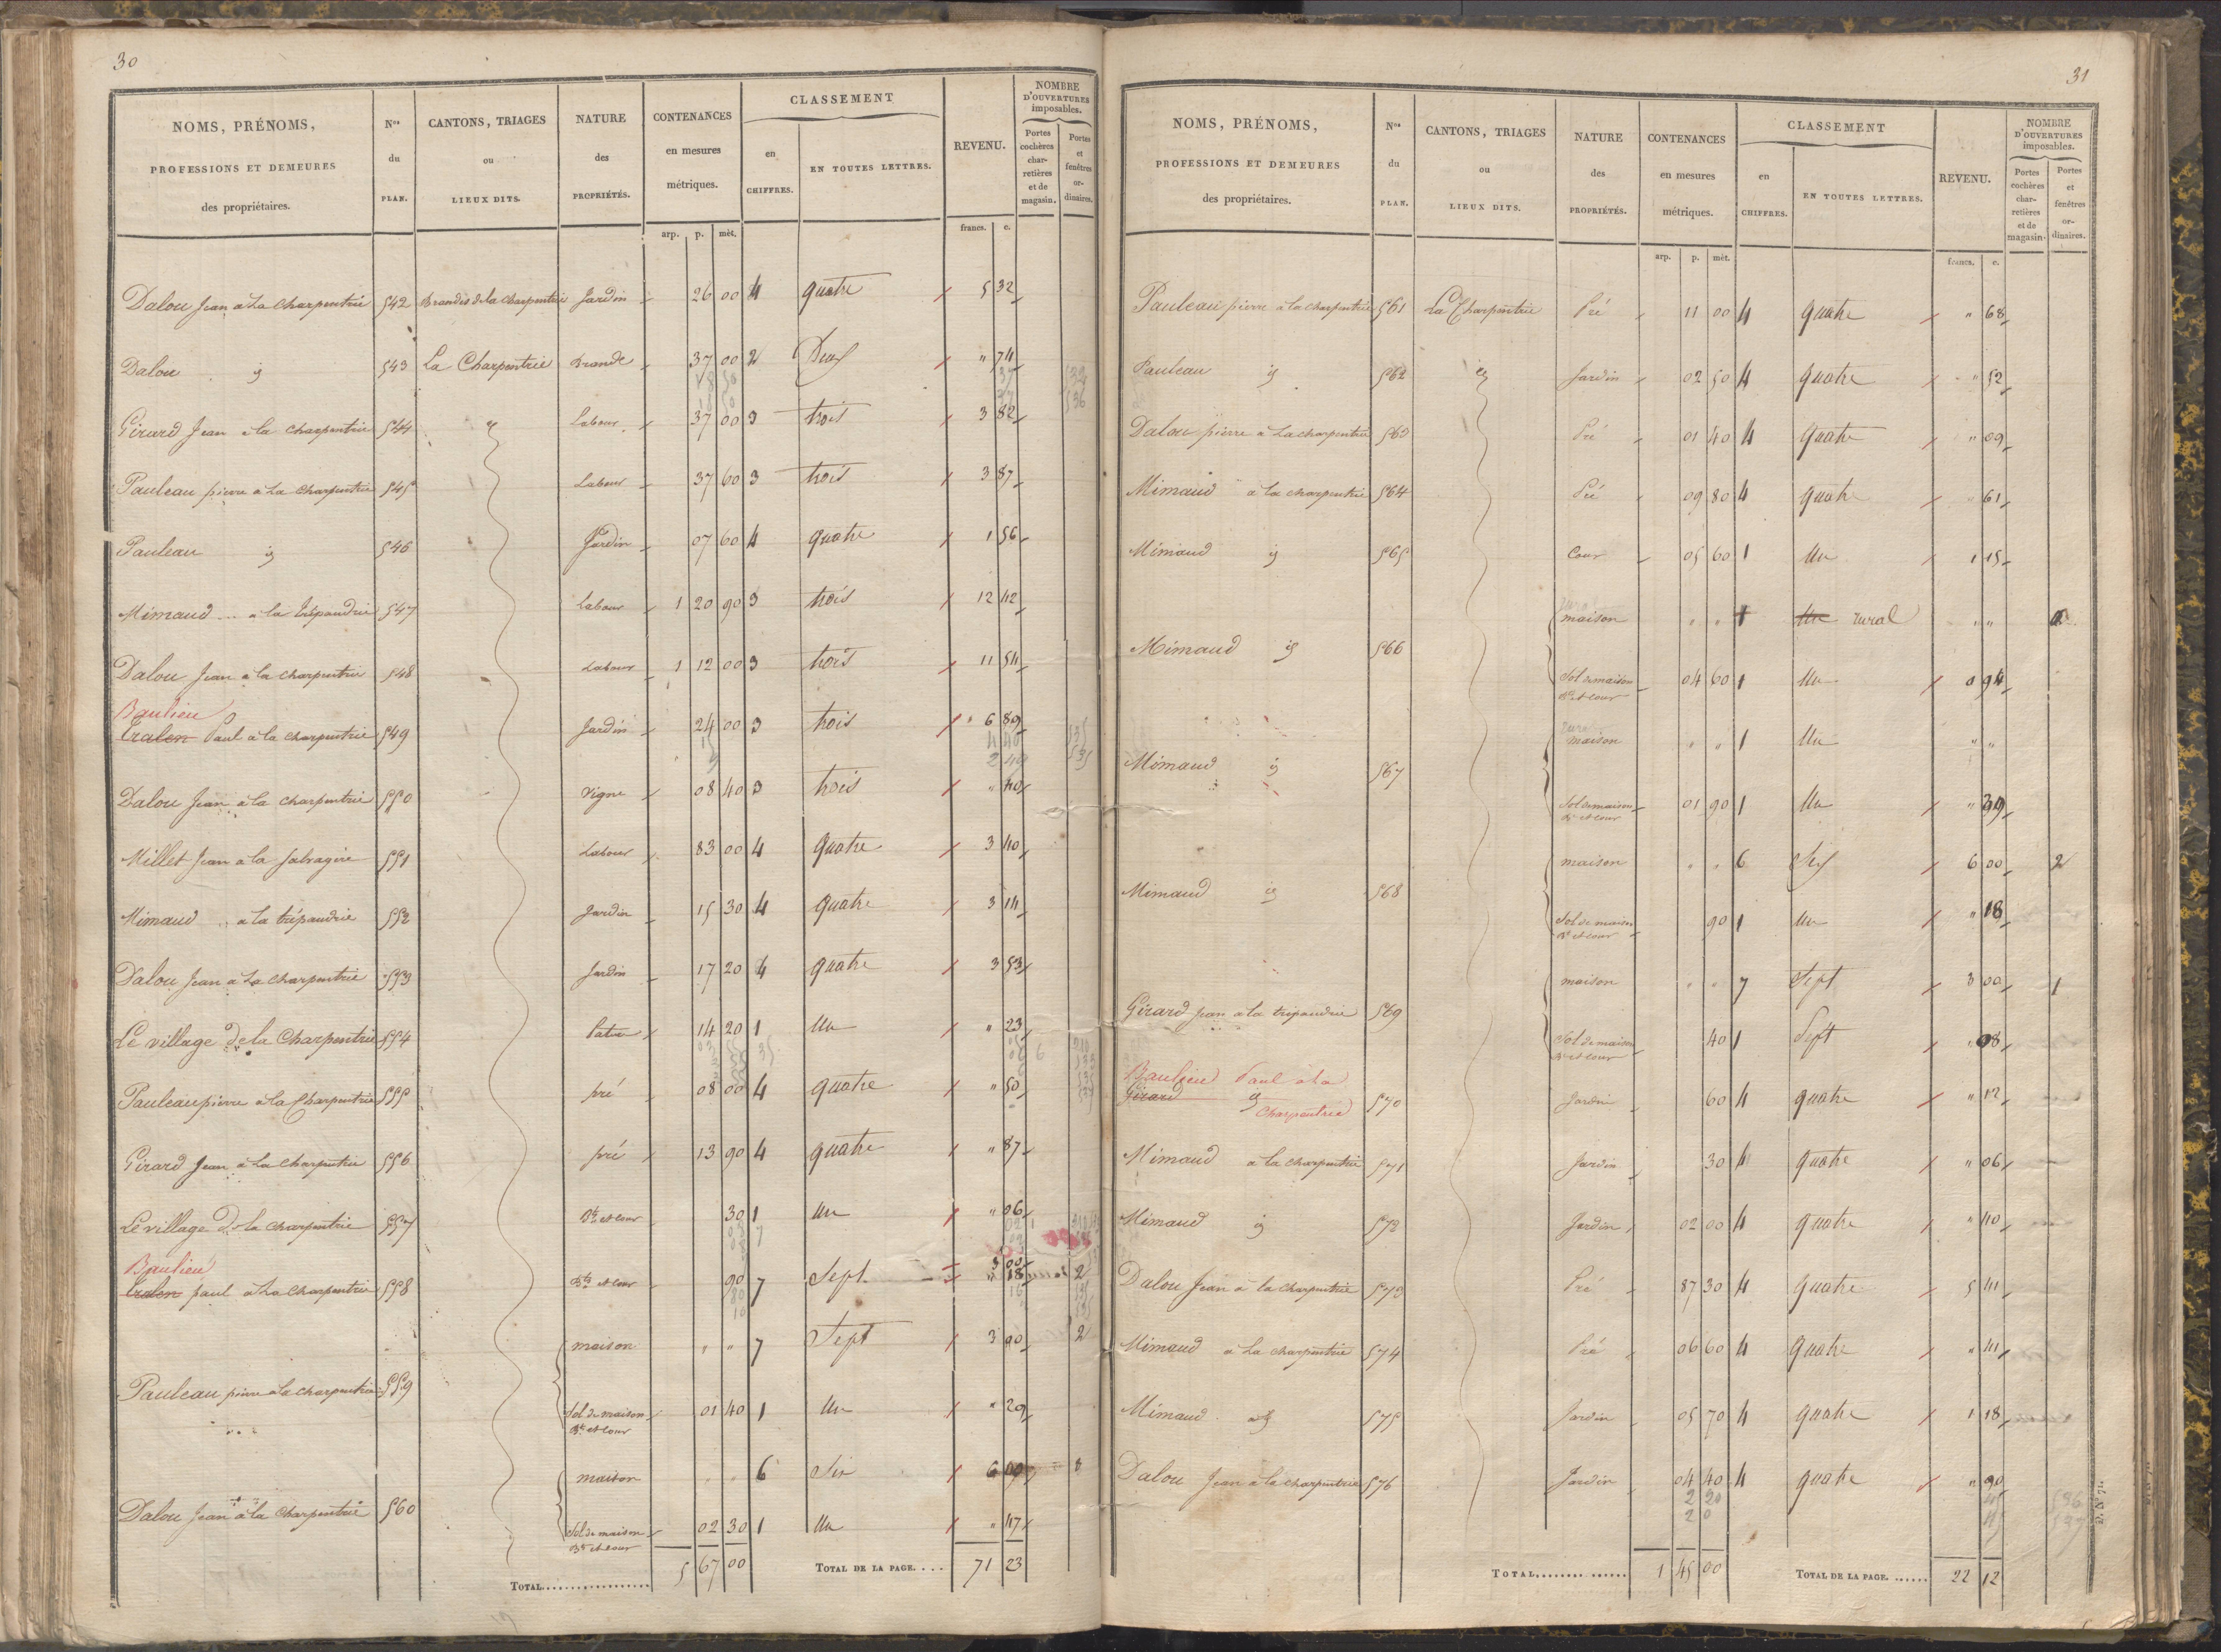 30
NOMS, PRÉNOMS, PROFESSIONS ET DEMEURES des propriétaires. | Nos du PLAN. | CANTONS, TRIAGES ou LIEUX DITS. | NATURE des PROPRIÉTÉS. | CONTENANCES en mesures métriques. | CLASSEMENT en CHIFFRES. | EN TOUTES LETTRES. | REVENU. | NOMBRE D'OUVERTURES imposables. Portes cochères charretières et de magasin. | Portes et fenêtres ordinaires.
arp. p. mèt. francs. c.
Dalou Jean a La Charpentrie 542 Brandes de la Charpentrie Jardin 26 00 4 quatre 5 32
Dalou id 543 La Charpentrie Brande 37 00 2 Deux " 74
Girard Jean a la Charpentrie 544 id Labour 37 00 3 trois 3 82
Pauleau pierre a La Charpentrie 545 Labour 37 60 3 trois 3 87
Pauleau id 546 Jardin 07 60 4 quatre 1 56
Mimaud a la trépaudrie 547 Labour 1 20 90 3 trois 12 42
Dalou Jean a la Charpentrie 548 Labour 1 12 00 3 trois 11 54
Baulieu
Paul a la Charpentrie 549 Jardin 24 00 3 trois 6 89
Dalou Jean a la Charpentrie 550 Vigne 08 40 3 trois " 40
Millet Jean a la 551 Labour 83 00 4 quatre 3 40
Mimaud a la trépaudrie 552 Jardin 15 30 4 quatre 3 14
Dalou Jean a La Charpentrie 553 Jardin 17 20 4 quatre 3 53
Le village de la Charpentrie 554 Patu 14 20 1 Un " 23
Pauleau pierre a la Charpentrie 555 pré 08 00 4 quatre " 50
Girard Jean a La Charpentrie 556 pré 13 90 4 quatre " 87
Le village de la Charpentrie 557 Bt et cour 30 1 un " 06
Baulieu
paul a La Charpentrie 558 Bts et cour 90 7 Sept 3 00 2
" 18
maison " " 7 Sept 3 00 2
Pauleau pierre a la Charpentrie 559
Sol de maison Bt et cour 01 40 1 Un " 29
maison 6 Six 6 00
Dalou Jean a la Charpentrie 560
Sol de maison Bt et cour 02 30 1 Un " 47
TOTAL 5 67 00 TOTAL DE LA PAGE. 71 23
31
NOMS, PRÉNOMS, PROFESSIONS ET DEMEURES des propriétaires. | Nos du PLAN. | CANTONS, TRIAGES ou LIEUX DITS. | NATURE des PROPRIÉTÉS. | CONTENANCES en mesures métriques. | CLASSEMENT en CHIFFRES. | EN TOUTES LETTRES. | REVENU. | NOMBRE D'OUVERTURES imposables. Portes cochères charretières et de magasin. | Portes et fenêtres ordinaires.
arp. p. mèt. francs. c.
Pauleau pierre a la Charpentrie 561 La Charpentrie Pré 11 00 4 quatre " 68
Pauleau id 562 id Jardin 02 50 4 quatre " 52
Dalou pierre a La charpentrie 563 Pré 01 40 4 quatre " 09
Mimaud a la charpentrie 564 Pré 09 80 4 quatre " 61
Mimaud id 565 Cour 05 60 1 Un 1 15
maison " " 1 Un rural " "
Mimaud id 566
Sol de maison Bt et cour 04 60 1 Un 0 94
maison " " 1 Un " "
Mimaud id 567
Sol de maison Bt et cour 01 90 1 Un " 39
maison " " 6 Six 6 00 2
Mimaud id 568
Sol de maison Bt et cour 90 1 Un " 18
maison " " 7 Sept 3 00 1
Girard Jean a la tripaudrie 569
Sol de maison Bt et cour 40 1 Sept " 08
Baulieu Paul a la
Girard id Charpentrie 570 Jardin 60 4 quatre " 12
Mimaud a la Charpentrie 571 Jardin 30 4 quatre " 06
Mimaud id 572 Jardin 02 00 4 quatre " 40
Dalou Jean a la Charpentrie 573 Pré 87 30 4 quatre 5 41
Mimaud a La charpentrie 574 Pré 06 60 4 quatre " 41
Mimaud id 575 Jardin 05 70 4 quatre 1 18
Dalou Jean a la Charpentrie 576 Jardin 04 40 4 quatre " 90
TOTAL 1 45 00 TOTAL DE LA PAGE. 22 12